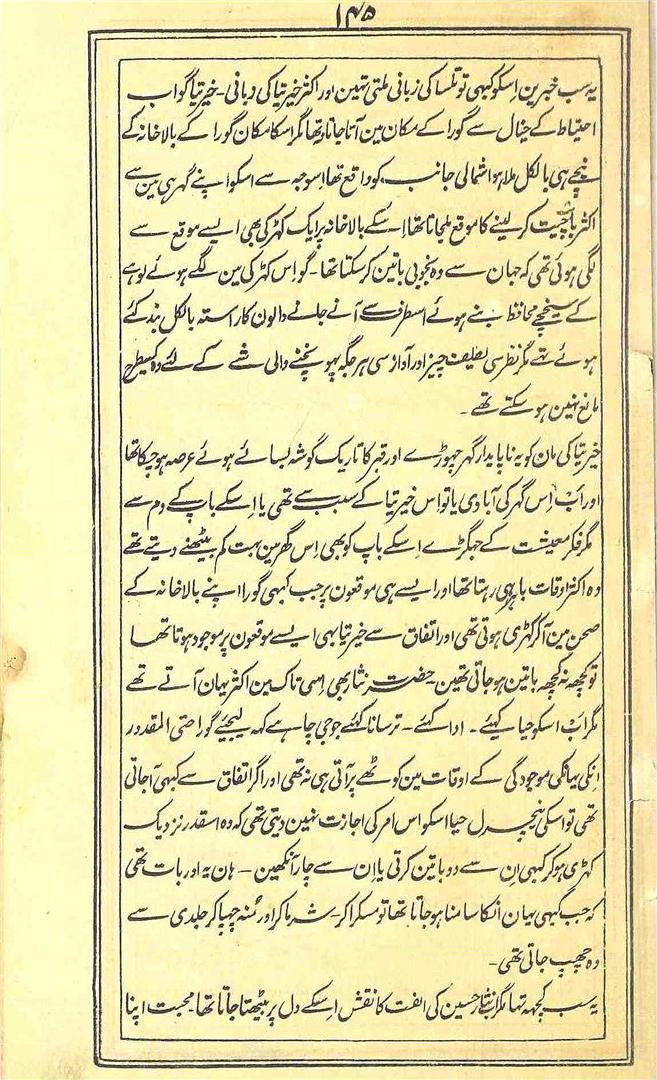 ۱۴۵
یہ سب خبرین اِسکو کبھی تو تلسا کی زبانی ملتی تہین اور اکثر خیر تیا کی زبانی۔ خیر تیا گو اب
احتیاط کے خیال سے گورا کے مکان مین آتا جاتا نہ تھا مگر اسکا مکان گورا کے بالاخانہ کے
نیچے ہی بالکل ملا ہوا شمالی جانب کو واقع تھا اسوجہ سے اسکو اپنے گہر ہی مین سے
اکثر بات چیت کر لینے کا موقع ملجاتا تھا اِسکے بالاخانہ پر ایک کہڑکی بھی ایسے موقع سے
لگی ہوئی تھی کہ جہان سے وہ بخوبی باتین کر سکتا تھا۔ گو اِس کہڑکی مین لگے ہوئے لوہے
کے سیخچے محافظ بنے ہوئے اسطرف سے آنے جانے والون کا راستہ بالکل بند کئے
ہوئے تہے مگر نظر سی لطیف چیز اور آواز سی ہر جگہ پہونچنے والی شے کے لئے وہ کسیطرح
مانع نہین ہو سکتے تھے۔
خیر تیا کی مان کو یہ ناپایدار گہر چہوڑے اور قبر کا تاریک گوشہ بسائے ہوئے عرصہ ہو چکا تھا
اور اَب اِس گہر کی آبادی یا تو اِس خیر تیا کے سبب سے تھی یا اِسکے باپ کے دم سے
مگر فکر معیشت کے جہگڑے اِسکے باپ کو بھی اِس گھر مین بہت کم بیٹھنے دیتے تھے
وہ اکثر اوقات باہر ہی رہتا تھا اور ایسے ہی موقعون پر جب کبہی گورا اپنے بالاخانہ کے
صحن مین آکر کہڑی ہوتی تھی اور اتفاق سے خیر تیا بہی ایسے موقعون پر موجود ہوتا تھا
تو کچھ نہ کچھ باتین ہو جاتی تھین۔ حضرت نثار بھی اِسی تاک مین اکثر یہان آتے تھے
مگر اَب اسکو حیا کہئے۔ ادا کہئے۔ ترسانا کہئے جو جی چاہے کہہ لیجئے گورا حتی المقدور
اِنکی یہانکی موجودگی کے اوقات مین کوٹھے پر آتی ہی نہ تھی اور اگر اتفاق سے کبہی آجاتی
تھی تو اسکی نیچرل حیا اسکو اس امر کی اجازت نہین دیتی تھی کہ وہ اسقدر نزدیک
کہڑی ہو کر کبہی اِن سے دو باتین کرتی یا اِن سے چار آنکھین۔ ہان یہ اور بات تھی
کہ جب کبہی یہان اُنکا سامنا ہو جاتا تھا تو مسکرا کر۔ شرما کر اور مُنہ چہپا کر جلدی سے
وہ چھپ جاتی تھی۔
یہ سب کچہہ تہا مگر اب نثار حسین کی الفت کا نقش اِسکے دل پر بیٹھتا جاتا تھا۔ محبت اپنا